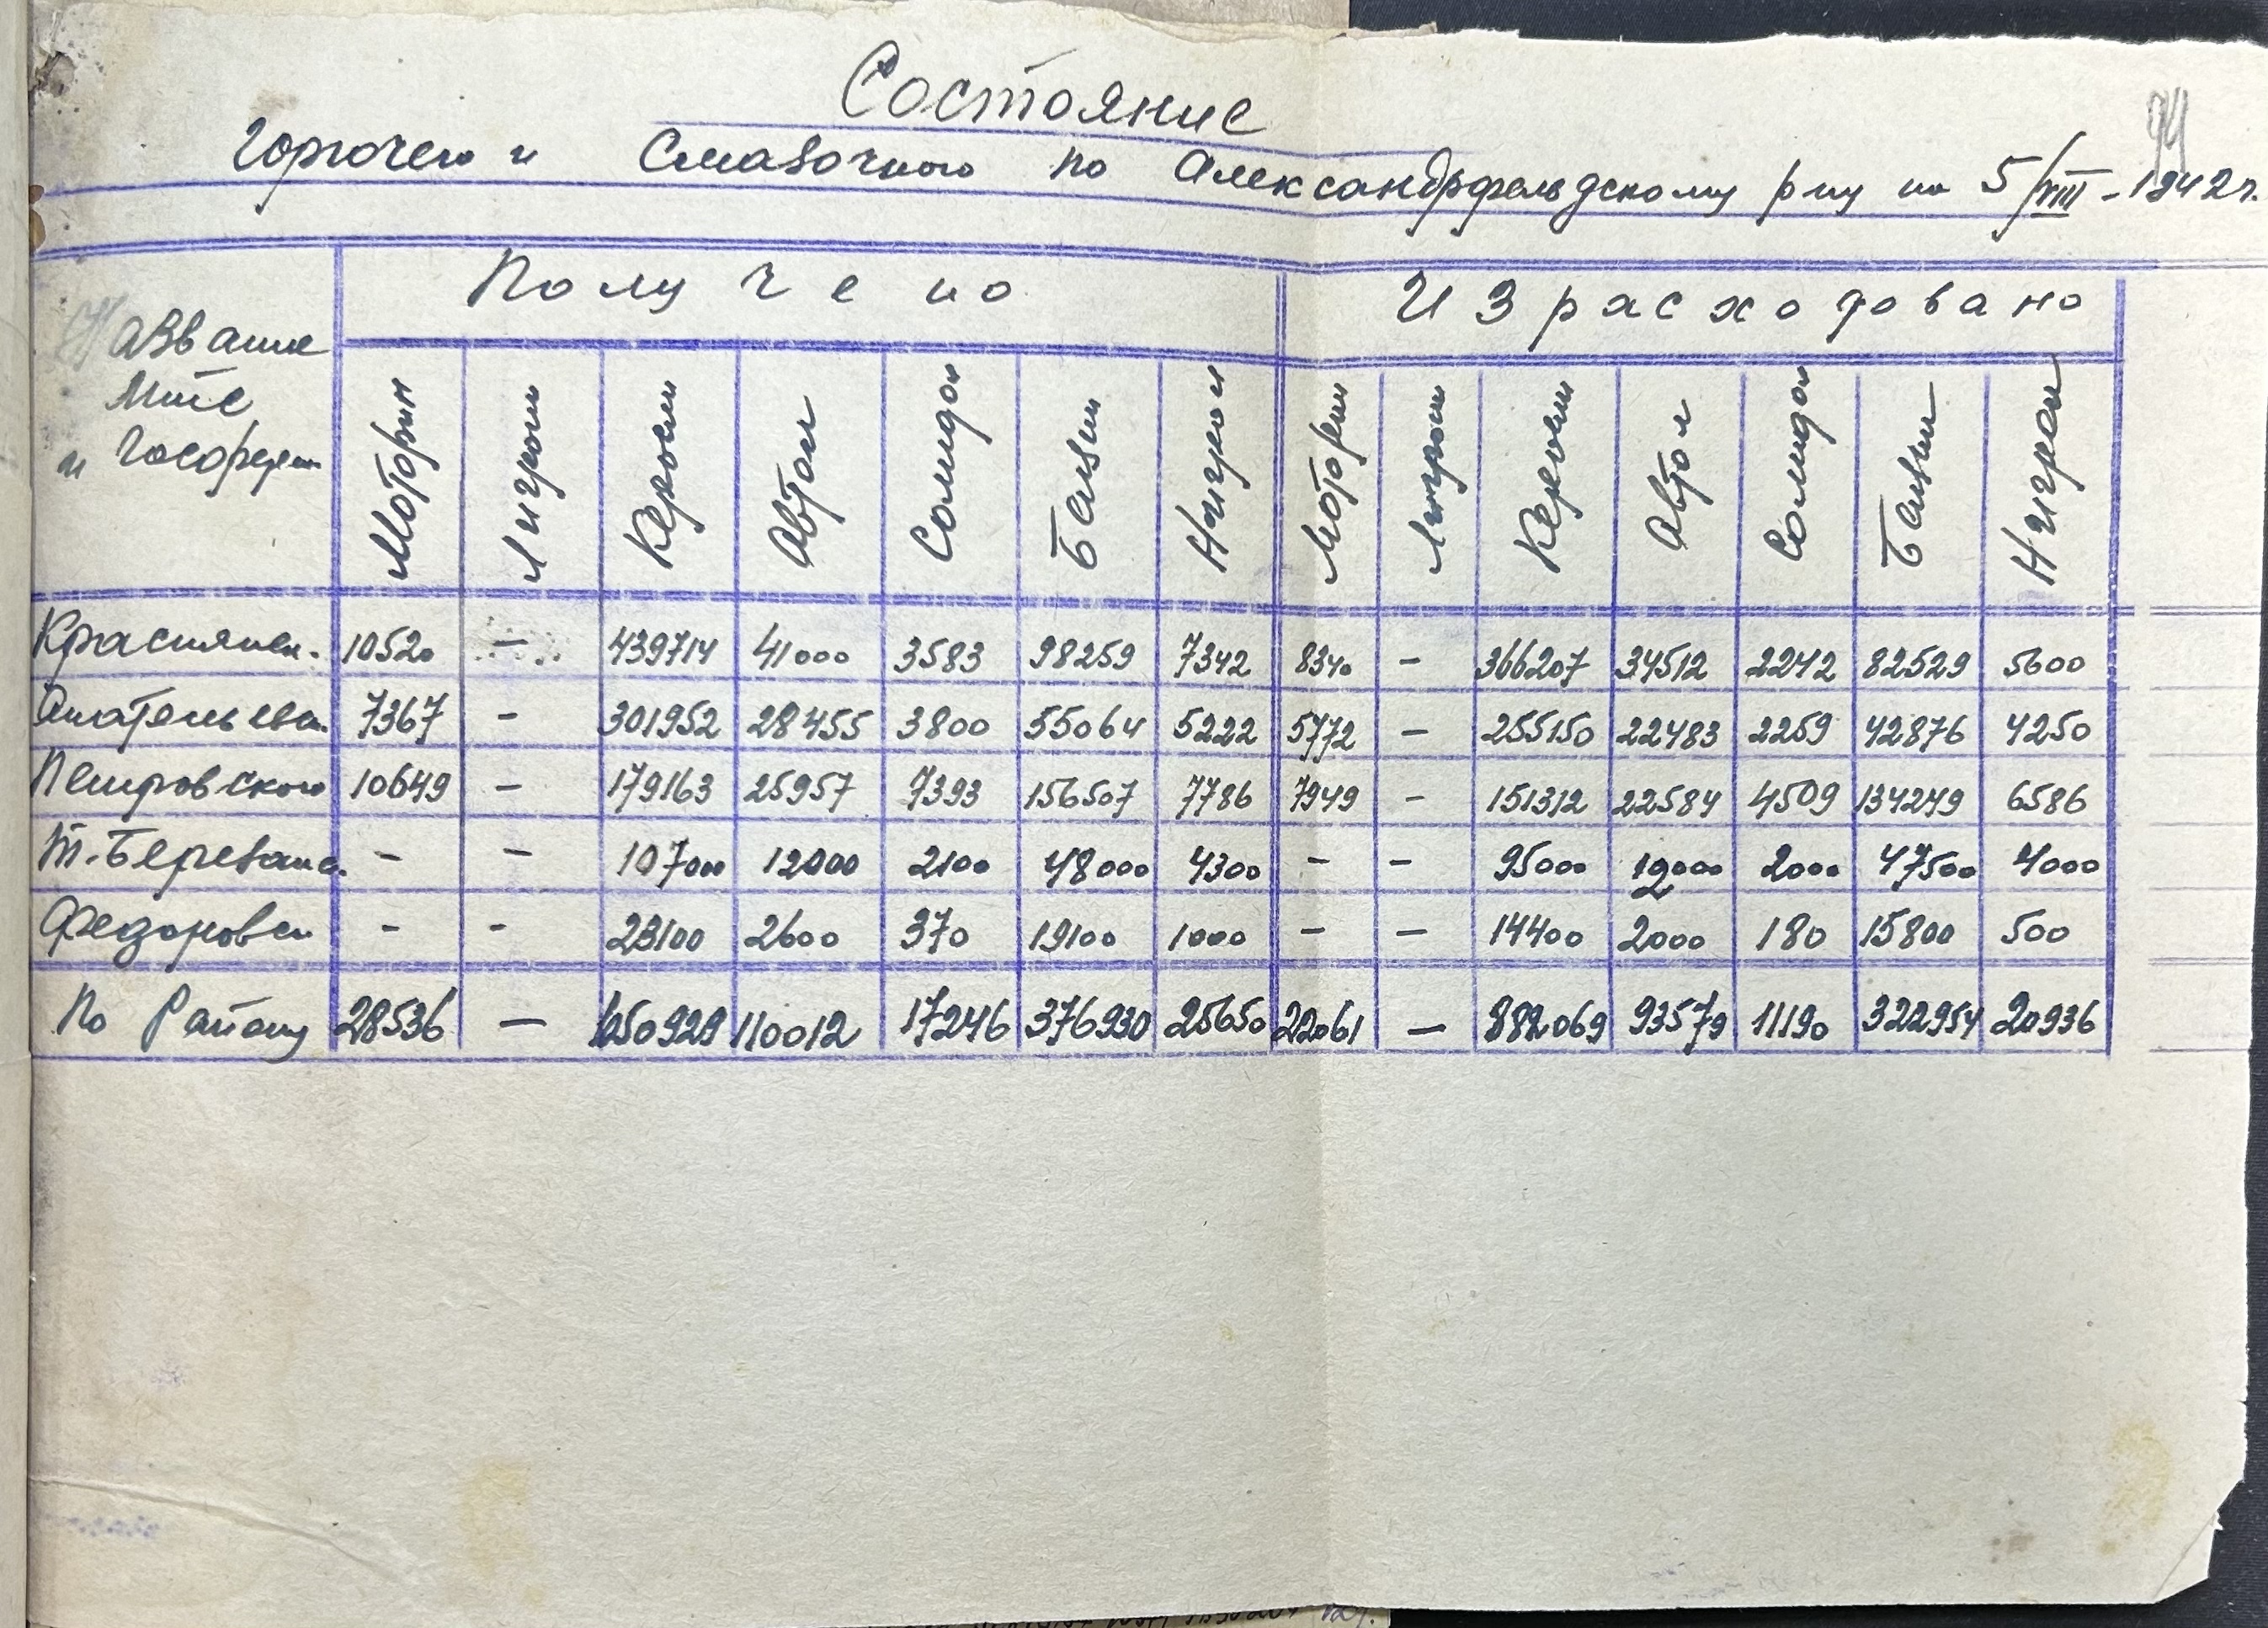 94
Состояние
Горючего и Смазочного по Александрфельдскому р-ну на 5/VIII-1942 г.
Название
Мтс
и Госорден
Получено
Израсходовано
Моторин Лигроин Керосин Автол Солидол Бензин Нигрол Моторин Лигроин Керосин Автол Солидол Бензин Нигрол
Краснянск. 10520 – 439714 41000 3583 98259 7342 8340 – 366207 34512 2242 82529 5600
Анатольевск. 7367 – 301952 28455 3800 55064 5222 5772 – 255150 22483 2259 42876 4250
Петровского 10649 – 179163 25957 7393 156507 7786 7949 – 151312 22584 4509 134249 6586
Т.-Березанс. – – 107000 12000 2100 48000 4300 – – 95000 12000 2000 47500 4000
Федоровск – – 23100 2600 370 19100 1000 – – 14400 2000 180 15800 500
По Району 28536 – 1050929 110012 17246 376930 25650 22061 – 882069 93579 11190 322954 20936